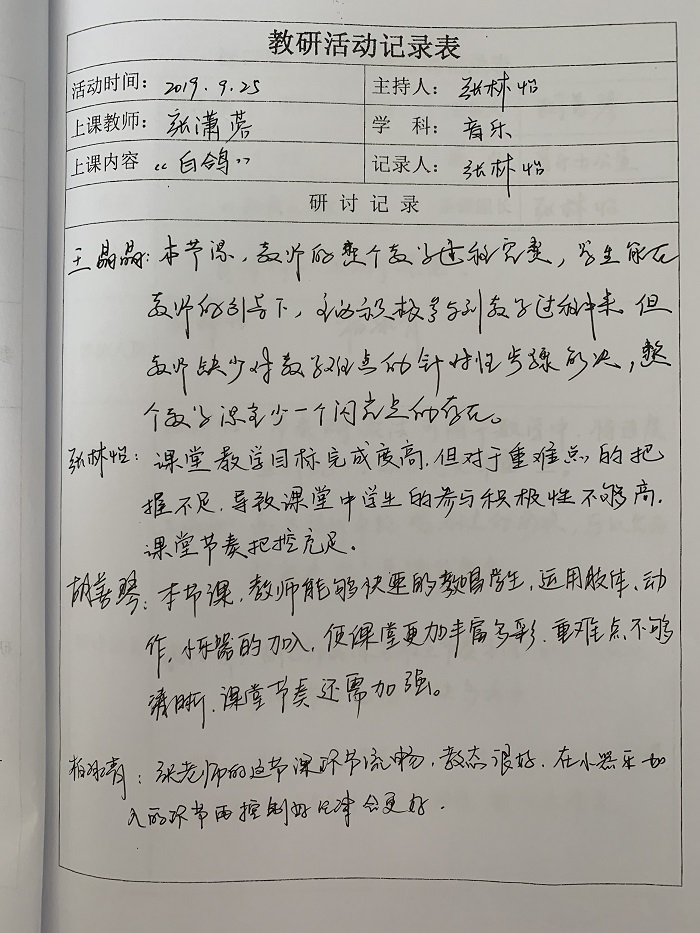 教研活动记录表
活动时间: 2019.9.25 主持人: 张林怡
上课教师: 张潇蓉 学 科: 音乐
上课内容 “白鸽” 记录人: 张林怡
研讨记录
王晶晶: 本节课,教师的整个教学过程完整,学生能在
教师的引导下,主动积极参与到教学过程中来。但
教师缺少对教学难点的针对性步骤解决,整
个教学课缺少一个闪光点的存在。
张林怡: 课堂教学目标完成度高,但对于重难点的把
握不足,导致课堂中学生的参与积极性不够高.
课堂节奏把控充足。
胡善琴: 本节课,教师能够快速的教唱学生,运用肢体、动
作,小乐器的加入,使课堂更加丰富多彩.重难点不够
清晰.课堂节奏还需加强。
柏冰青: 张老师的这节课环节流畅,教态很好.在小器乐加
入的环节再控制好纪律会更好.